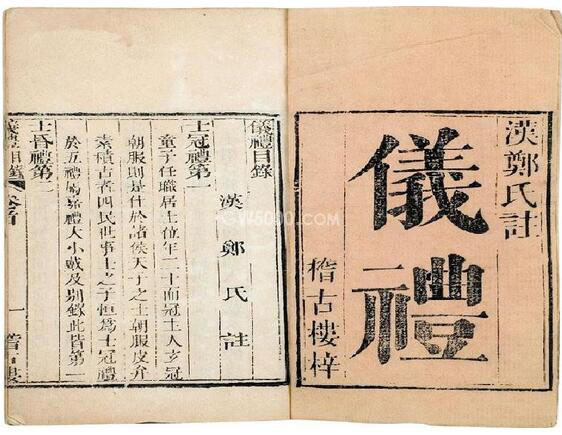 漢鄭氏註
儀禮
稽古樓梓
儀禮目錄
漢鄭氏註
士冠禮第一
童子任職居士位年二十而冠士人玄冠
朝服則是仕於諸侯天子之士朝服皮弁
素積古者四民世事士之子恒為士冠禮
於五禮屬嘉禮大小戴及別錄此皆第一
士昏禮第二